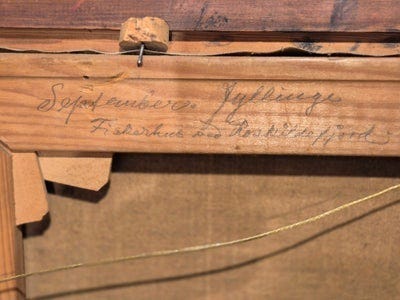 September. Jyllinge
Fiskerhus ved Roskildefjord